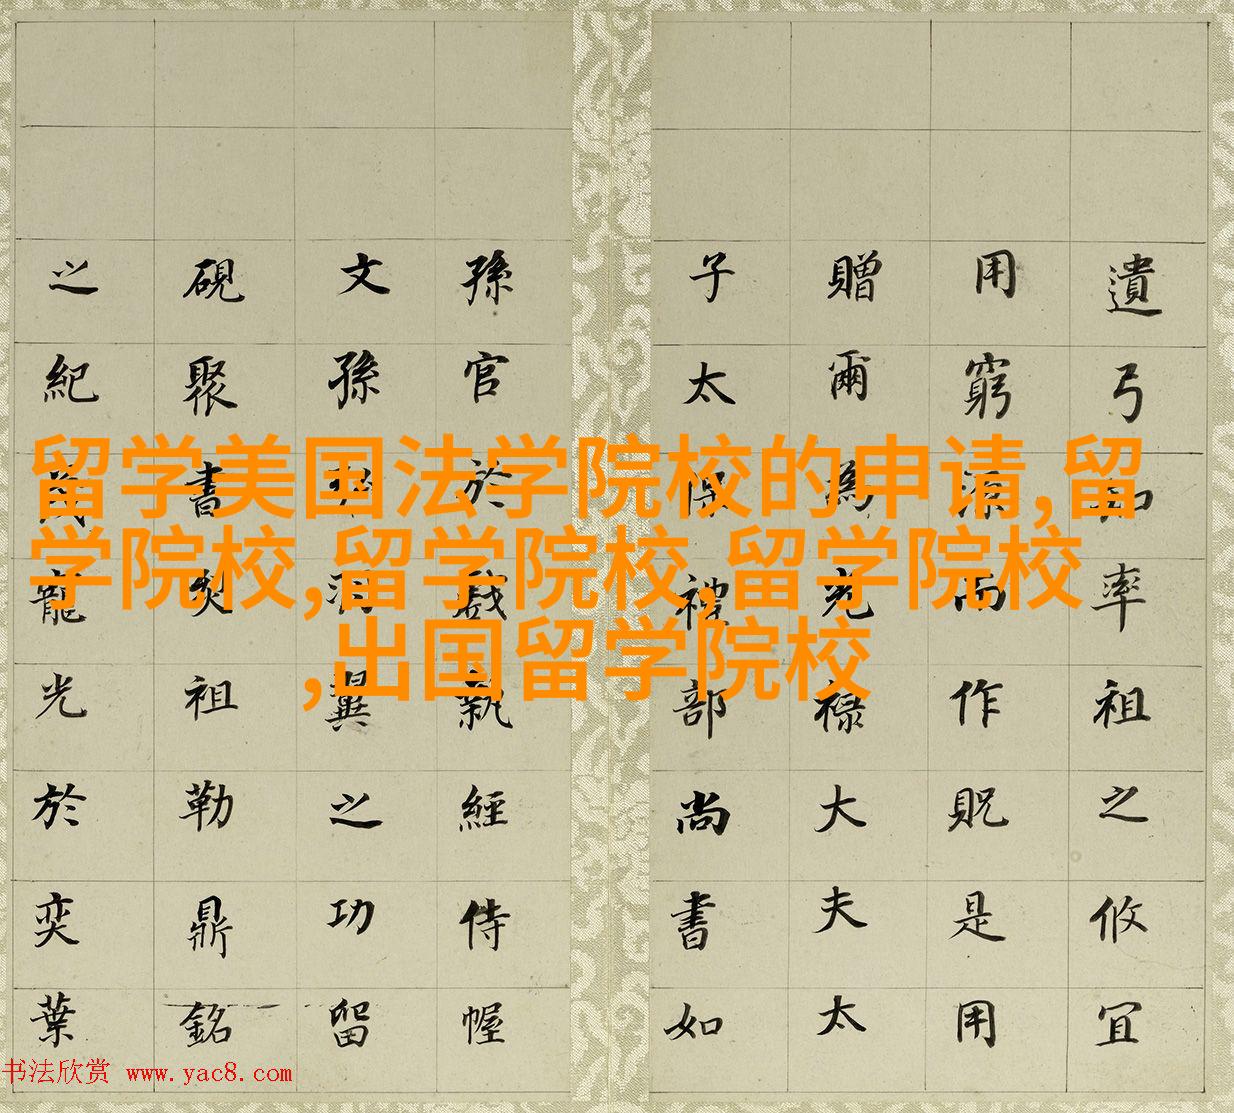 留学美国法学院校的申请,留
学院校,留学院校,留学院校
,出国留学院校
遺弓率祖之攸宜
用窮源而作貺是用
贈爾為光祿大夫太
子太保禮部尚書如
孫官於戲執經侍幄
文孫翼之功留
硯聚書契祖勒鼎銘
之紀茂寵光於奕葉
书法欣赏 www.yac8.com